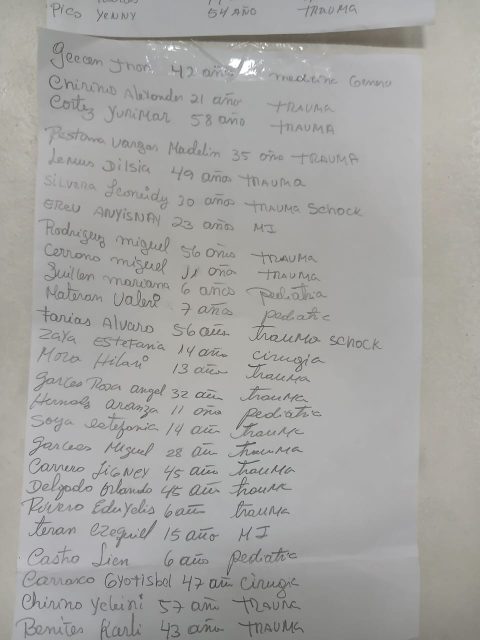 Pico Yenny 54 año TRAUMA
Geecen Jhon 42 años medicina General
Chirinos Alexander 21 año TRAUMA
Cortez Yurimar 58 año TRAUMA
Pestana Vargas Madelin 35 año TRAUMA
Lemus Dilsia 49 años TRAUMA
Silvera Leoneidy 30 años TRAUMA SCHOCK
EREU ANYISNAY 23 años MI
Rodriguez miguel 56 años TRAUMA
Cerrano miguel 11 año TRAUMA
Guillen mariana 6 años pediatria
Materan Valeri 7 años pediatric
Farias Alvaro 56 año trauma SCHOCK
Zaya Estefania 14 año cirugia
Moza Hilari 13 año trauma
Garces Rosa angel 32 año trauma
aranza 11 año pediatria
Soya estefania 14 año trauma
Garcees Miguel 28 añ trauma
Carrero Signey 45 año trauma
Delgado Orlando 45 año trauma
Rivero EduYelis 6 año trauma
teran Ezequiel 15 año MI
Castro Lien 6 año pediatria
Carrasco 47 añ Cirugia
Chirino Yeleini 57 año TRAUMA
Benites Karli 43 año TRAUMA